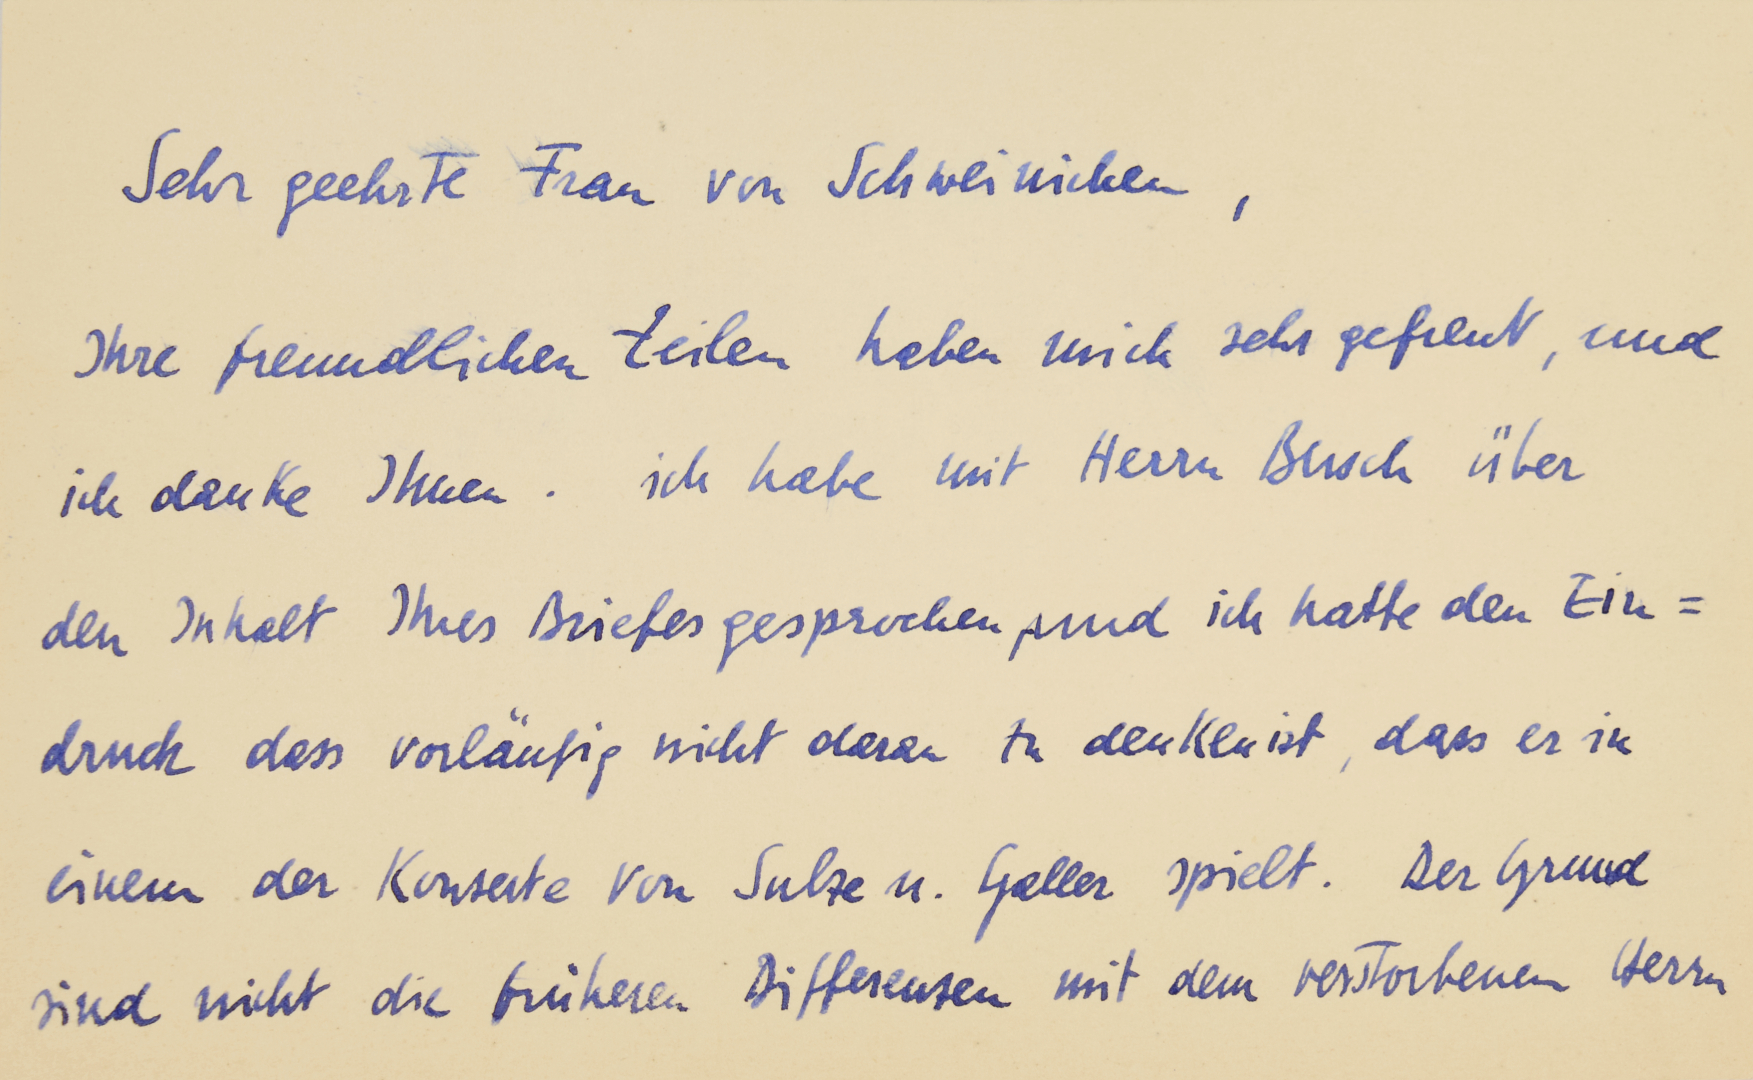 Sehr geehrte Frau von Schweinichen,
Ihre freundlichen Zeilen haben mich sehr gefreut, und
ich danke Ihnen. ich habe mit Herrn Busch über
den Inhalt Ihres Briefes gesprochen, und ich hatte den Ein=
druck dass vorläufig nicht daran zu denken ist, dass er in
einem der Konzerte von Sulze u. Galler spielt. Der Grund
sind nicht die früheren Differenzen mit dem verstorbenen Herrn